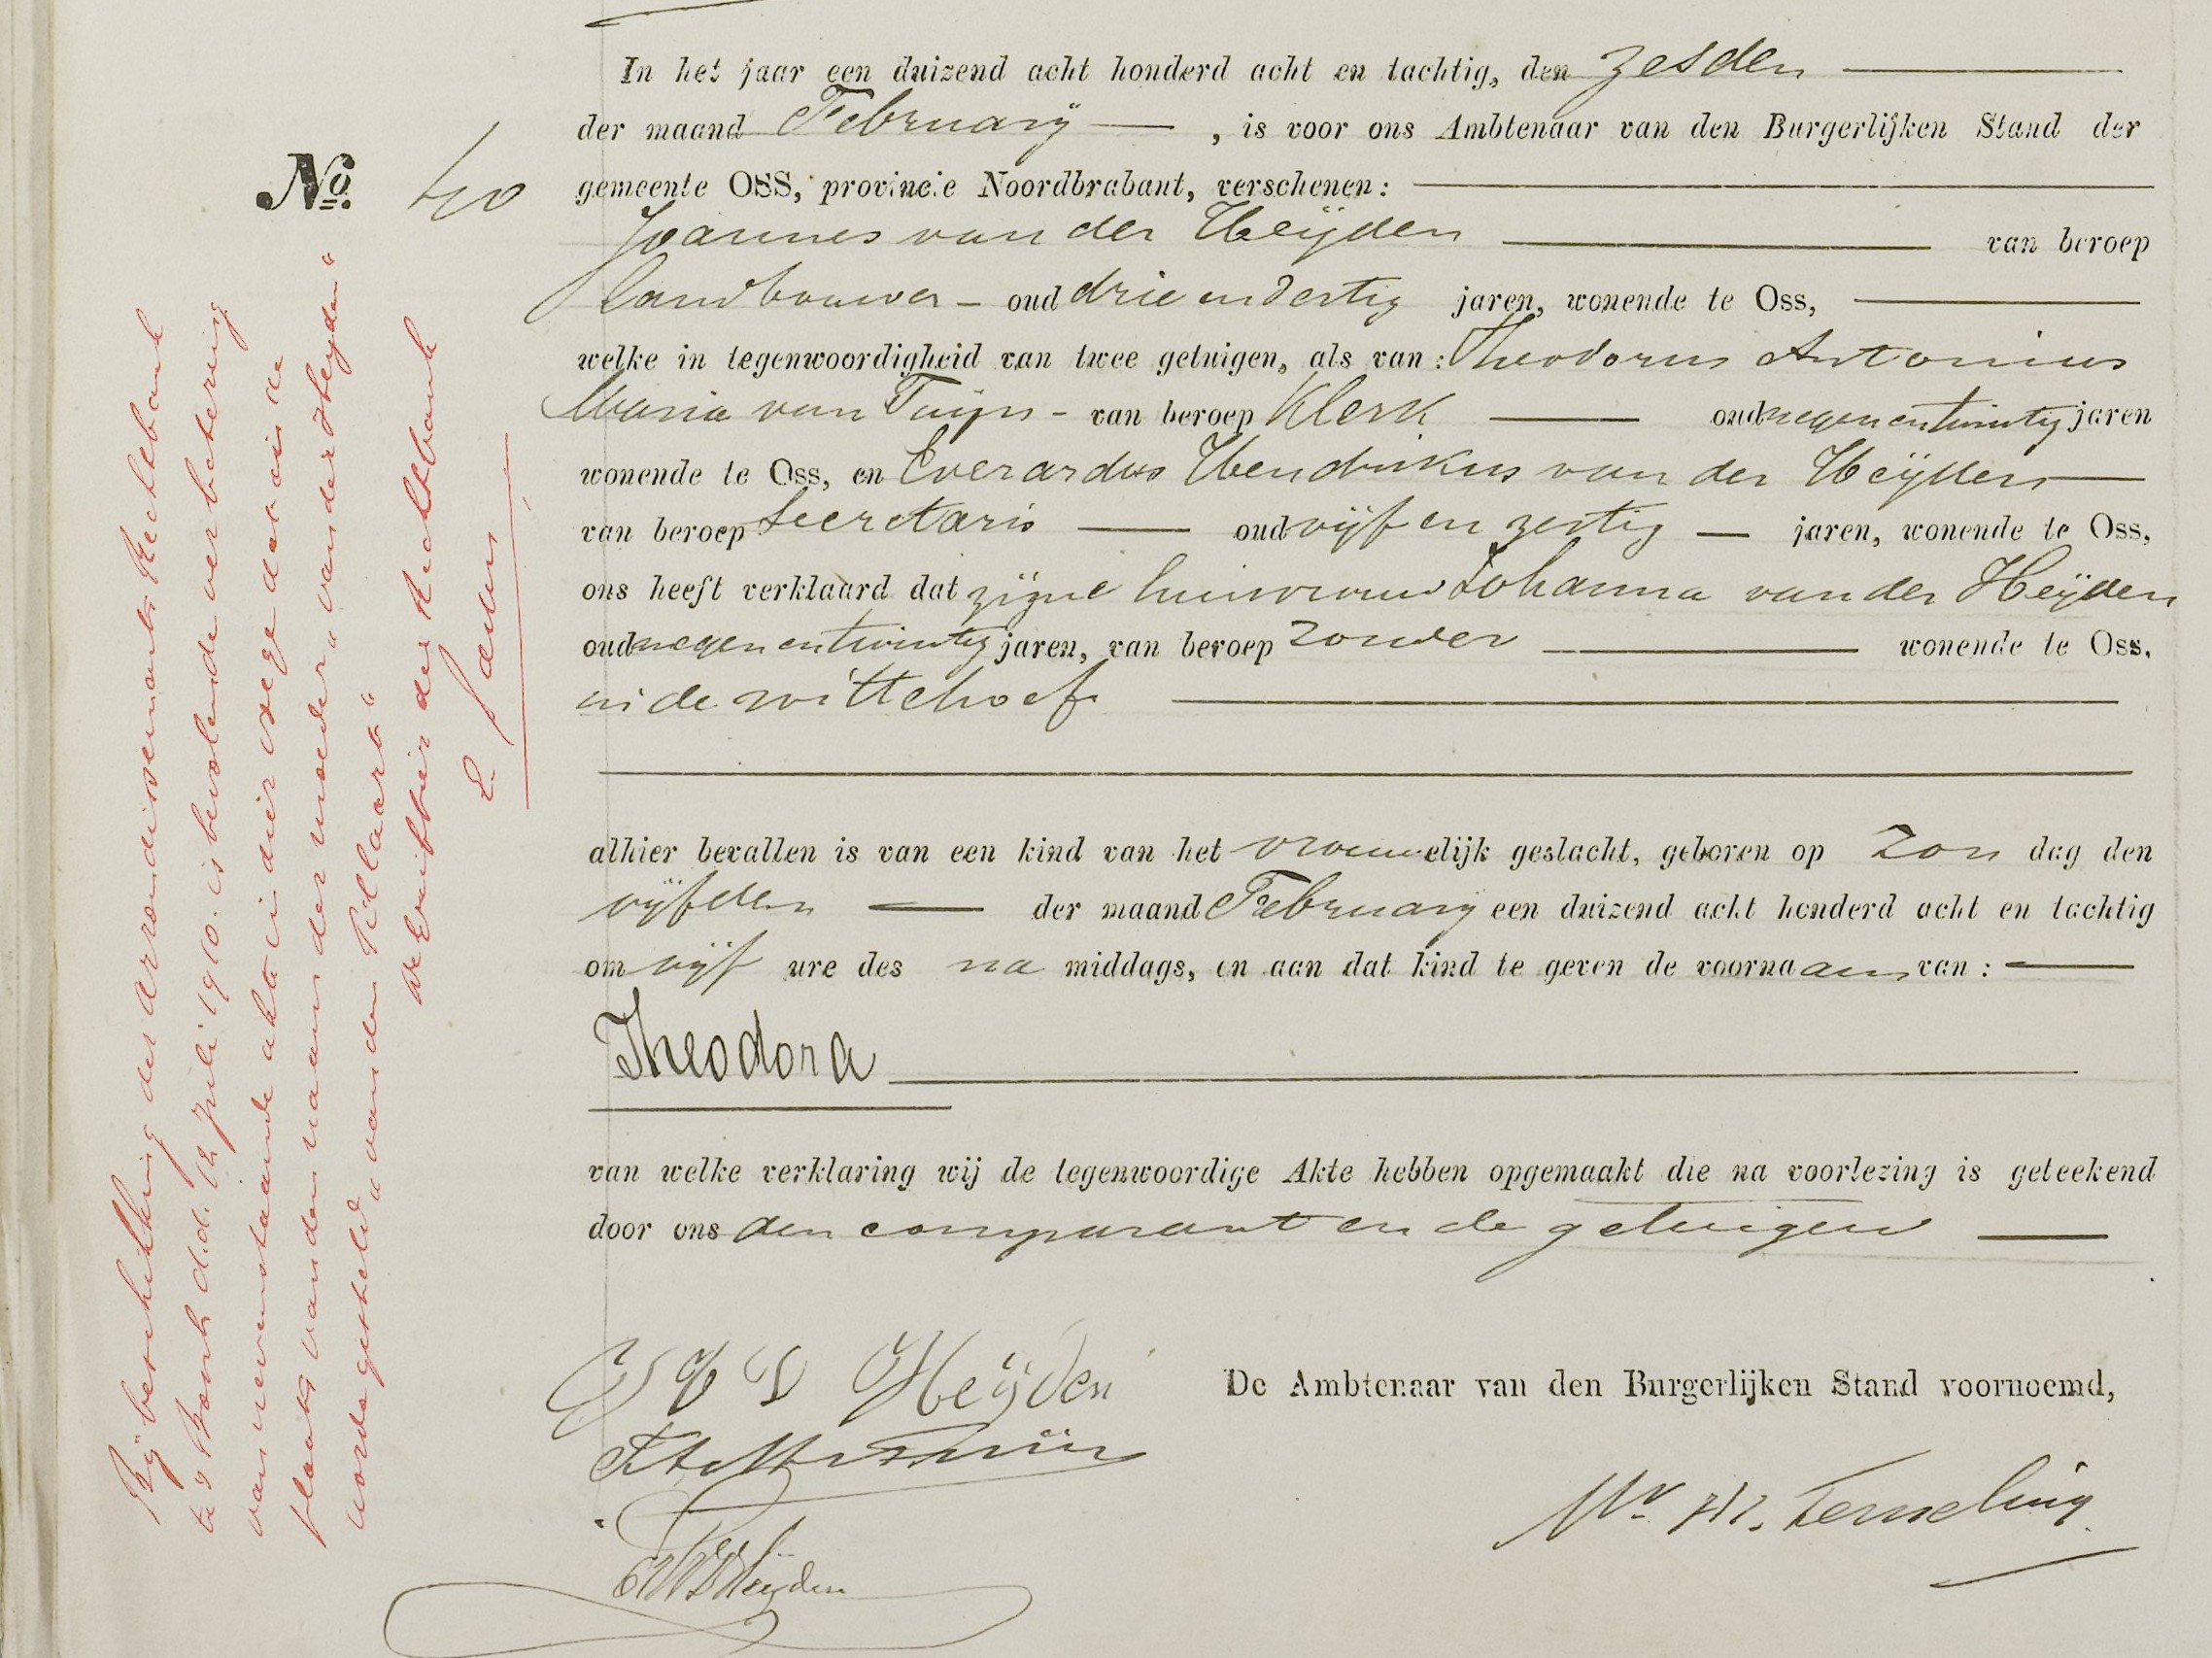 In het jaar een duizend acht honderd acht en tachtig, den zesden
der maand February, is voor ons Ambtenaar van den Burgerlijken Stand der
No. 40
gemeente OSS, provincie Noordbrabant, verschenen:
Joannes van der Heijden van beroep
landbouwer - oud drie en dertig jaren, wonende te Oss,
welke in tegenwoordigheid van twee getuigen, als van: Theodorus Antonius
Maria van Tuijn - van beroep Klerk oud negen en twintig jaren
wonende te Oss, en Everardus Hendrikus van der Heijden
van beroep Secretaris oud vijf en zestig jaren, wonende te Oss,
ons heeft verklaard dat zijne huisvrouw Johanna van der Heijden
oud negen en twintig jaren, van beroep zonder wonende te Oss,
in de wittehoef
alhier bevallen is van een kind van het vrouwelijk geslacht, geboren op Zon dag den
vijfden der maand February een duizend acht honderd acht en tachtig
om vijf ure des na middags, en aan dat kind te geven de voornaam van:
Theodora
van welke verklaring wij de tegenwoordige Akte hebben opgemaakt die na voorlezing is geteekend
door ons den comparant en de getuigen
De Ambtenaar van den Burgerlijken Stand voornoemd,
Heijden
Bij beschikking der Arrondissements Rechtbank
te 's Bosch d.d. 12 Juli 1910. is bevolen de verbetering
van nevenstaande akte in dier voege dat in de
plaats van den naam der moeder "van der Heijden"
worde gesteld "van den Pillaard"
de Griffier der Rechtbank